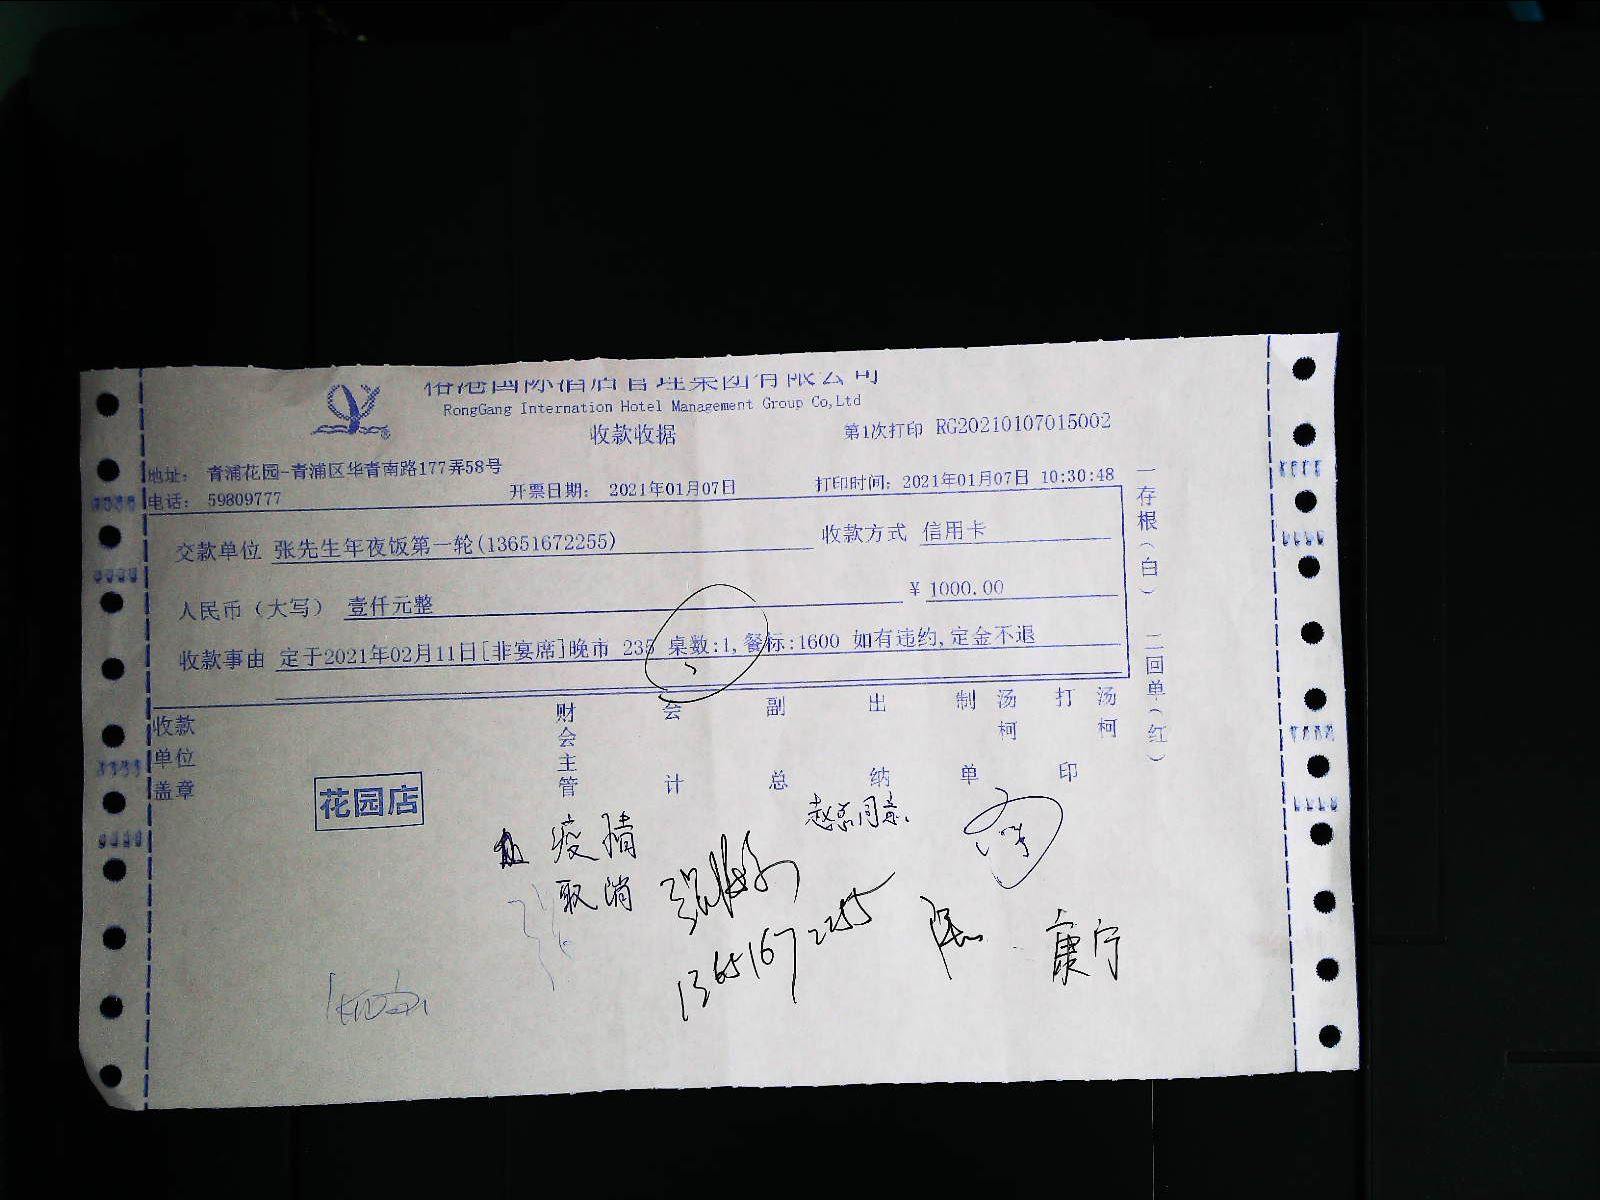 国际酒店管理集团有限公司
RongGang Internation Hotel Management Group Co,Ltd
收款收据
第1次打印 RG20210107015002
地址： 青浦花园-青浦区华青南路177弄58号
电话： 59809777
开票日期： 2021年01月07日
打印时间：2021年01月07日 10:30:48
交款单位 张先生年夜饭第一轮(13651672255)
收款方式 信用卡
人民币（大写） 壹仟元整
¥ 1000.00
收款事由 定于2021年02月11日[非宴席]晚市 235 桌数:1,餐标:1600 如有违约,定金不退
一存根（白） 二回单（红）
收款单位盖章
财会主管 会计 副总 出纳 制单 汤柯 打印 汤柯
花园店
疫情
取消
13651672255
康宁